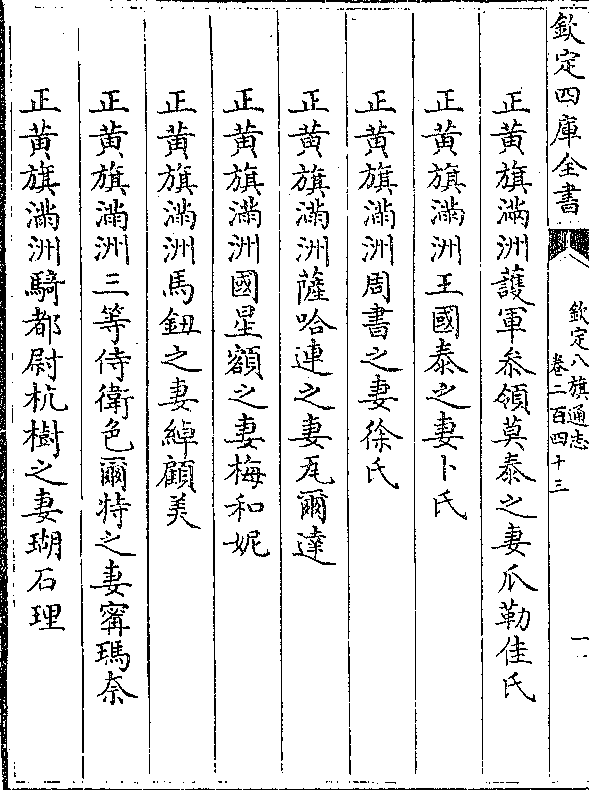 欽定四庫全書
欽定八旗通志
卷二百四十三
一
正黃旗滿洲護軍叅領莫泰之妻瓜勒佳氏
正黃旗滿洲王國泰之妻卜氏
正黃旗滿洲周書之妻徐氏
正黃旗滿洲薩哈連之妻瓦爾達
正黃旗滿洲國星額之妻梅和妮
正黃旗滿洲馬鈕之妻綽顧美
正黃旗滿洲三等侍衛色爾特之妻甯瑪柰
正黃旗滿洲騎都尉杭樹之妻瑚石理